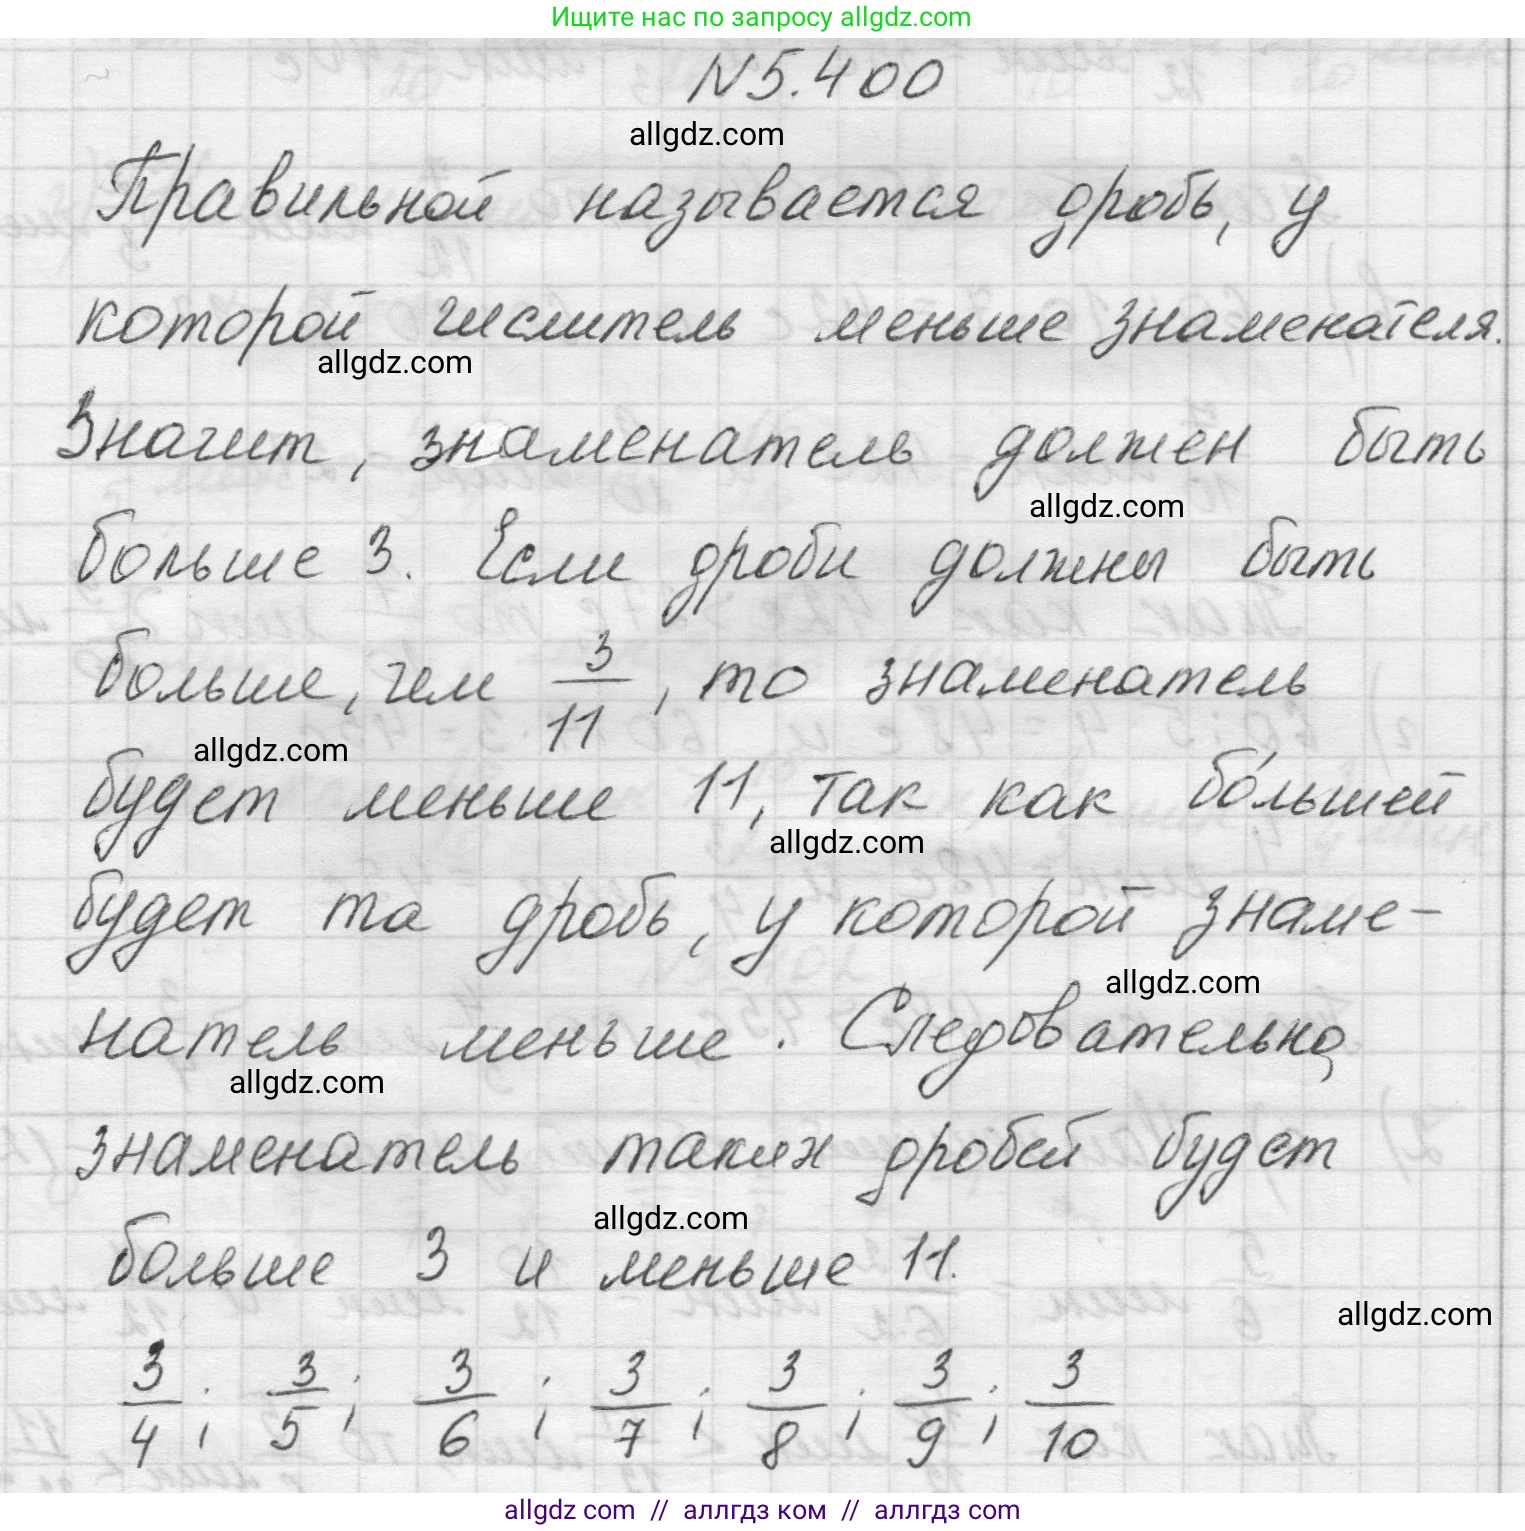 Ищите нас по запросу allgdz.com
N5.400
allgdz.com
Правильной называется дробь, у
которой числитель меньше знаменателя.
allgdz.com
Значит, знаменатель должен быть
allgdz.com
больше 3. Если дроби должны быть
больше, чем 3/11, то знаменатель
allgdz.com
будет меньше 11, так как бо́льшей
allgdz.com
будет та дробь, у которой знаме-
allgdz.com
натель меньше. Следовательно,
allgdz.com
знаменатель таких дробей будет
allgdz.com
больше 3 и меньше 11.
allgdz.com
3/4; 3/5; 3/6; 3/7; 3/8; 3/9; 3/10
allgdz.com // аллгдз ком // аллгдз com